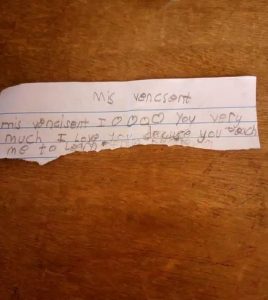 mis vencsent
mis vencisent I OOOO You very
much I Love you becuse you teach
me to Learn